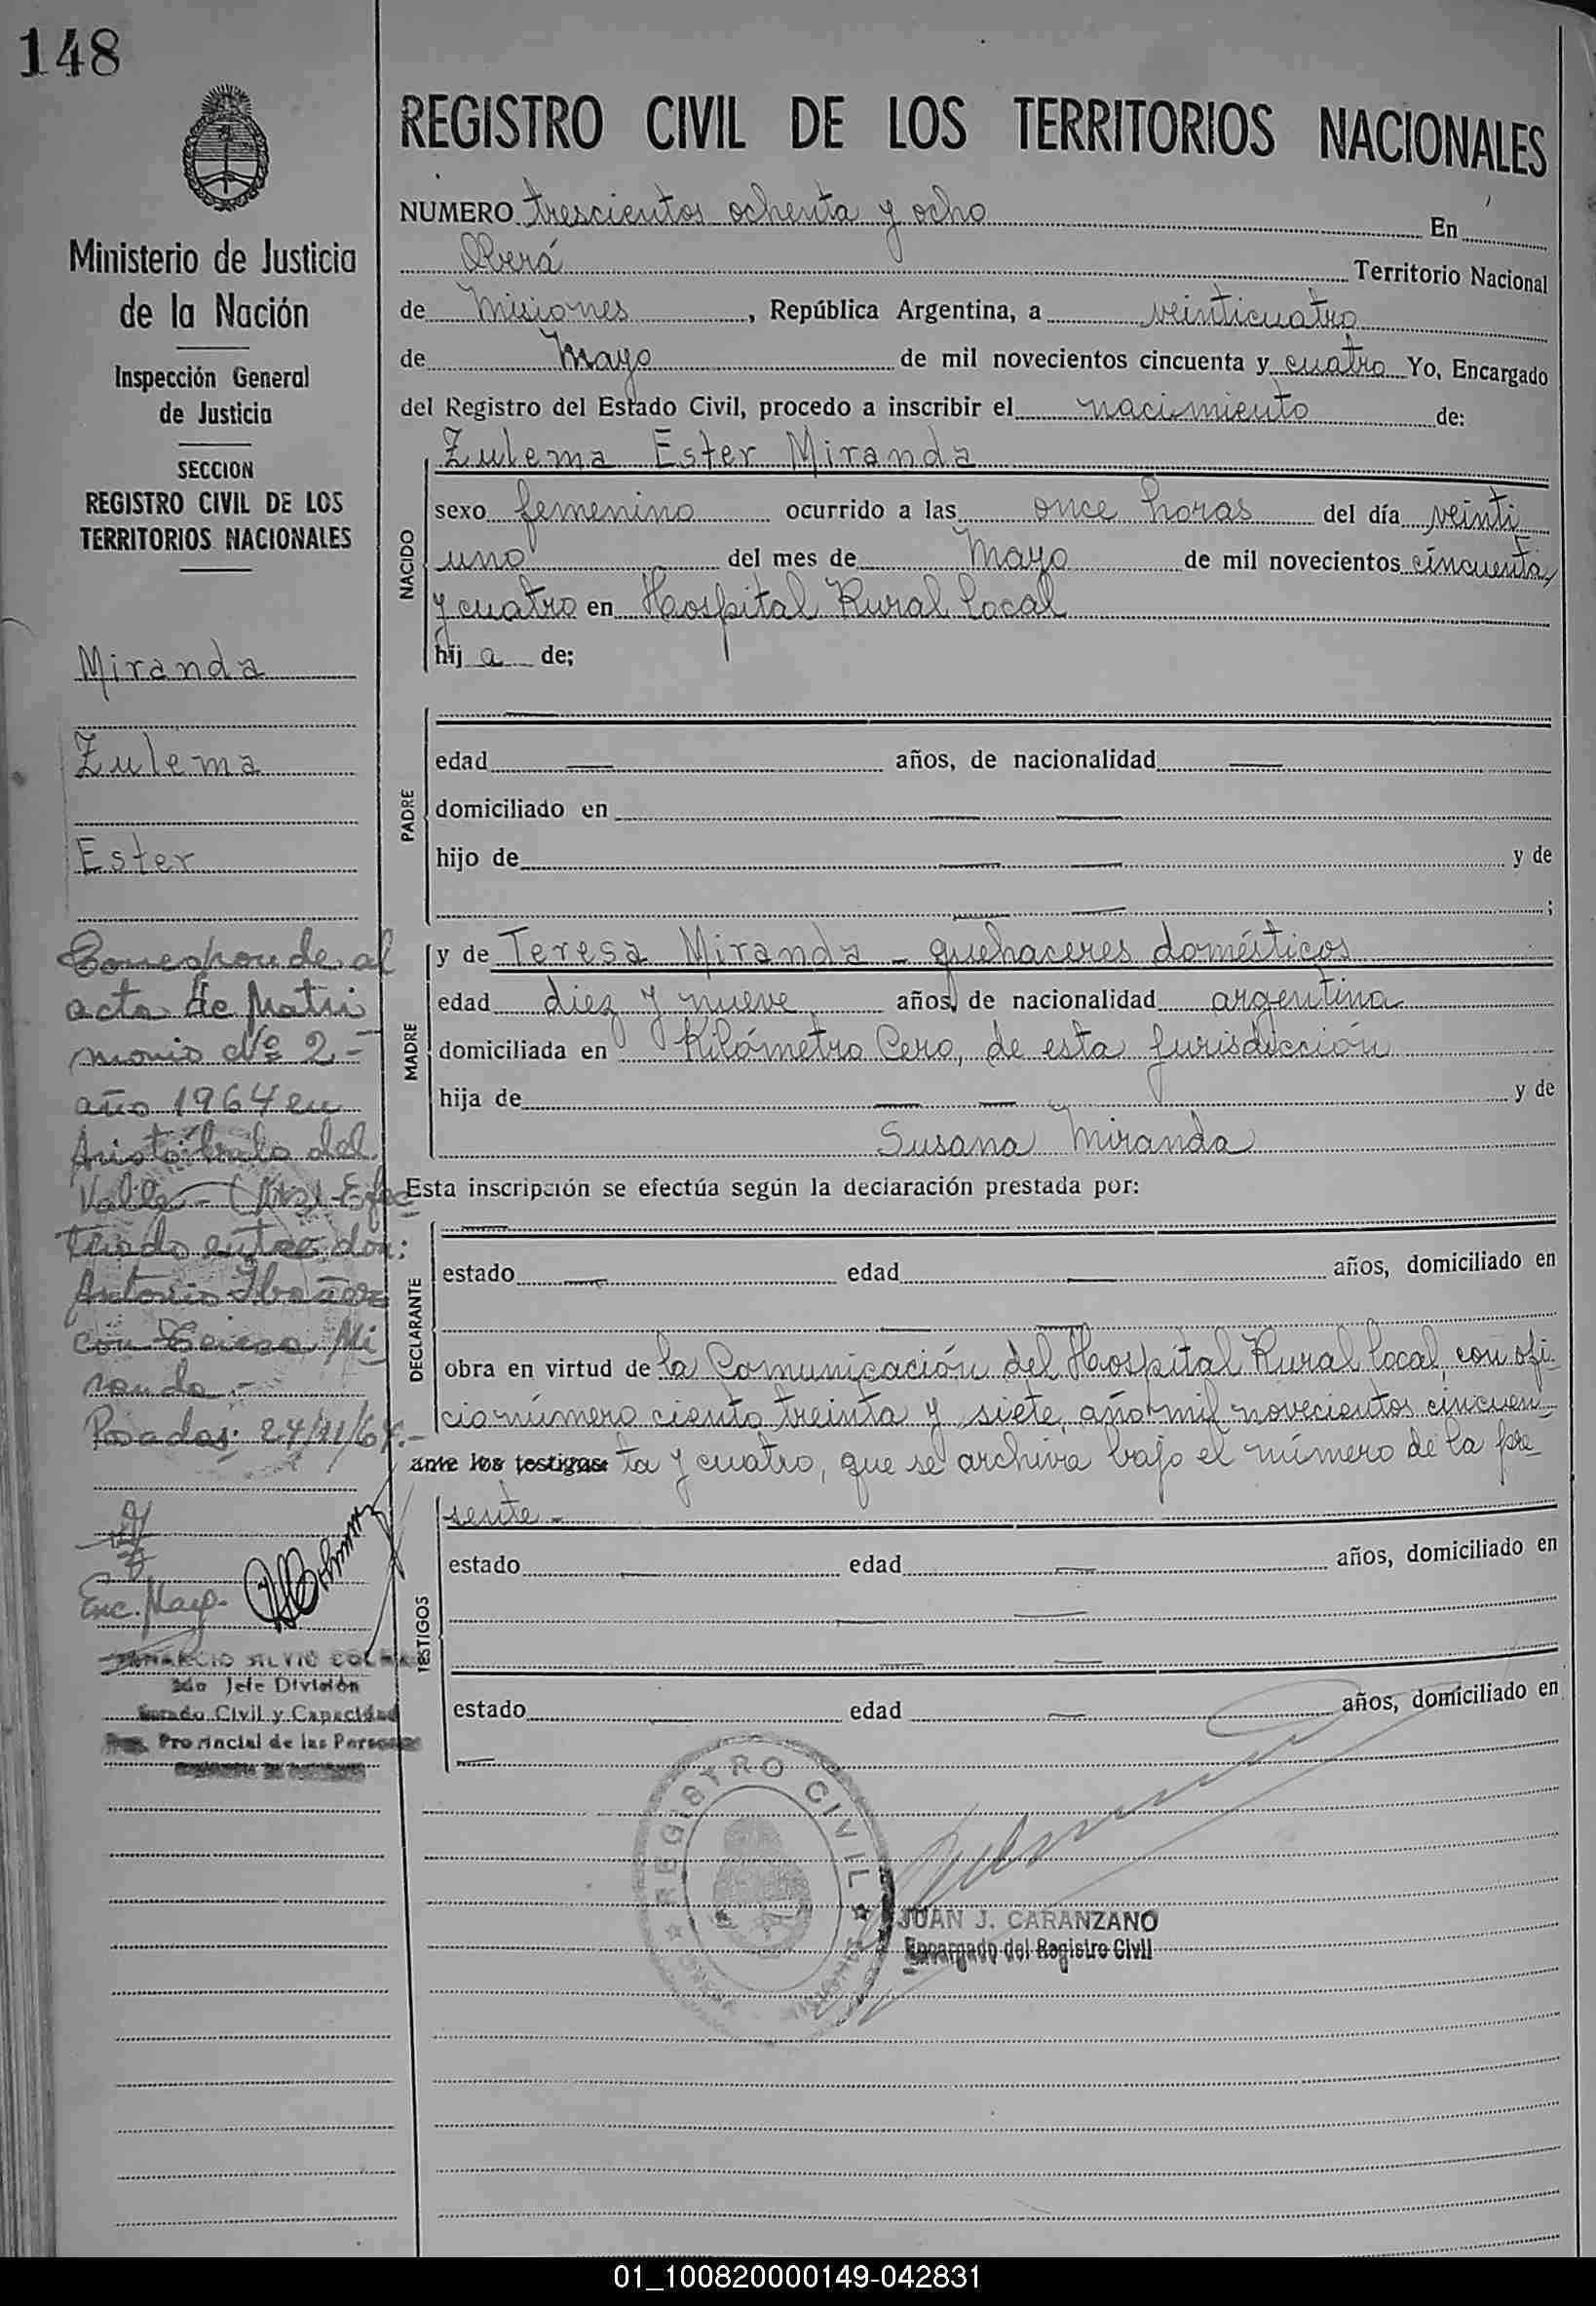 148
REGISTRO CIVIL DE LOS TERRITORIOS NACIONALES
Ministerio de Justicia
de la Nación
Inspección General
de Justicia
SECCION
REGISTRO CIVIL DE LOS
TERRITORIOS NACIONALES
Miranda
Zulema
Ester
Corresponde al
acta de Matri
monio Nº 2.-
año 1964 en
Aristóbulo del
Valle - (Mns) - Efec
tuado entre don:
Antonio Ibañez
con Teresa Mi
randa.-
Posadas: 24/11/64.-
Enc. Mayo-
SILVIO
2do Jefe División
Estado Civil y Capacidad
Provincial de las Personas
NUMERO trescientos ochenta y ocho En
Oberá Territorio Nacional
de Misiones, República Argentina, a veinticuatro
de Mayo de mil novecientos cincuenta y cuatro Yo, Encargado
del Registro del Estado Civil, procedo a inscribir el nacimiento de:
NACIDO
Zulema Ester Miranda
sexo femenino ocurrido a las once horas del día veinti
uno del mes de Mayo de mil novecientos cincuenta
y cuatro en Hospital Rural Local
hij a de;
PADRE
edad — años, de nacionalidad —
domiciliado en — —
hijo de — — y de
— — ;
MADRE
y de Teresa Miranda - quehaceres domésticos
edad diez y nueve años, de nacionalidad argentina
domiciliada en Kilómetro Cero, de esta jurisdicción
hija de — — y de
Susana Miranda
Esta inscripción se efectúa según la declaración prestada por:
DECLARANTE
estado — edad — años, domiciliado en
— —
obra en virtud de la Comunicación del Hospital Rural Local, con ofi-
cio número ciento treinta y siete, año mil novecientos cincuen-
ante los testigos: ta y cuatro, que se archiva bajo el número de la pre-
sente.-
TESTIGOS
estado — edad — años, domiciliado en
— —
— —
estado edad — años, domiciliado en
—
REGISTRO CIVIL
JUAN J. CARANZANO
Encargado del Registro Civil
01_100820000149-042831